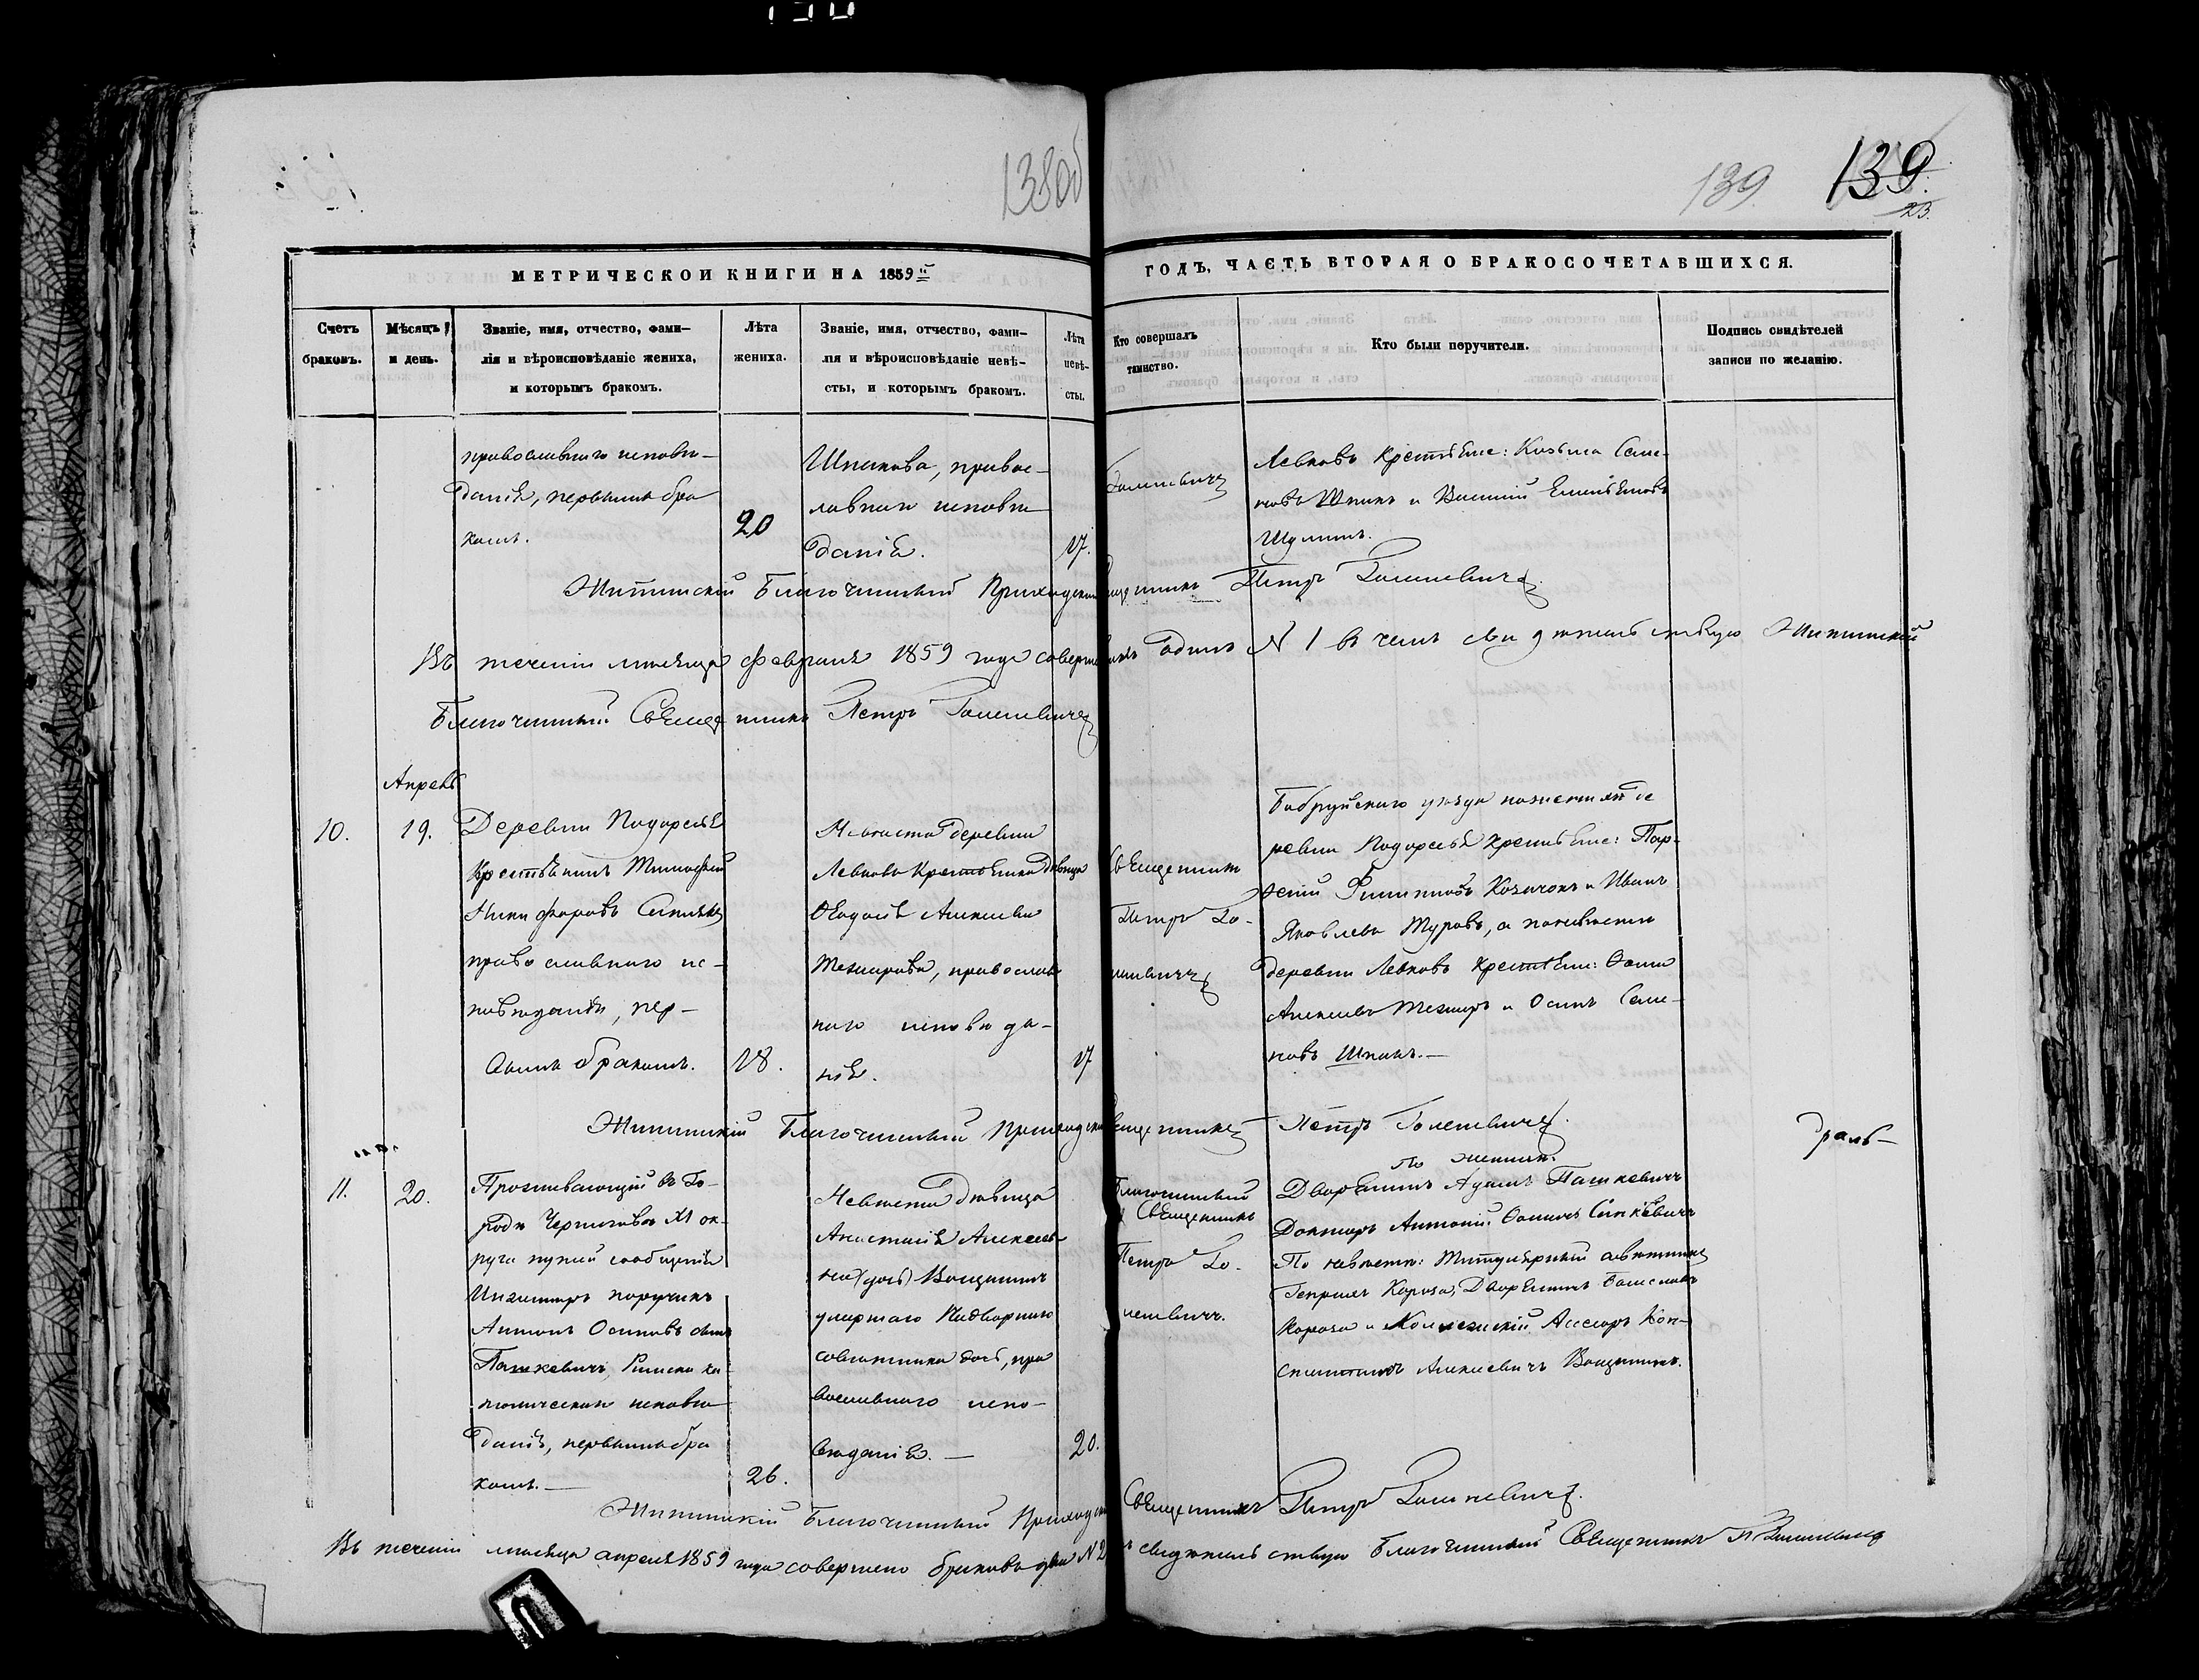 138об
139
139.
23.
МЕТРИЧЕСКОЙ КНИГИ НА 1859й
ГОДЪ, ЧАСТЬ ВТОРАЯ О БРАКОСОЧЕТАВШИХСЯ.
Счетъ
браковъ.
Мѣсяцъ
и день.
Званіе, имя, отчество, фами-
лія и вѣроисповѣданіе жениха,
и которымъ бракомъ.
Лѣта
жениха.
Званіе, имя, отчество, фами-
лія и вѣроисповѣданіе невѣ-
сты, и которымъ бракомъ.
Лѣта
невѣ-
сты.
Кто совершалъ
таинство.
Кто были поручители.
Подпись свидѣтелей
записи по желанію.
православнаго исповѣ-
данія, первымъ бра
комъ.
20
Шпакова, правос-
лавнаго исповѣ
данія.
17.
Левковъ крестьяне: Козьма Семе-
новъ Шпакъ и Василій Емельяновъ
Благочинный Приходскій Священникъ Петръ
Въ теченіи мѣсяца февраля 1859 года совершенъ одинъ N 1 въ чемъ свидѣтельствую
Благочинный Священникъ Петръ
Апрель
10.
19.
Деревни Подоресья
крестьянинъ Тимофей
Никифоровъ
православнаго ис-
повѣданія, пер-
вымъ бракомъ.
18.
Невѣста деревни
Левковъ крестьянка дѣвица
Ѳеодосія Алексѣева
православ
наго исповѣда-
нія.
17
Священникъ
Петръ Го-
Бобруйскаго уѣзда по женихѣ де
ревни Подоресья крестьяне: Пар-
фений Филиповъ Козачокъ и Иванъ
Яковлевъ Туровъ, а по невѣстѣ
деревни Левковъ крестьяне: Ѳома
Алексѣевъ и Осипъ Семе-
новъ Шпакъ.—
Благочинный Приходскій Священникъ Петръ
11.
20.
Проживающій въ Го-
родѣ Черниговѣ XI ок-
руга путей сообщенія
Инженеръ поручикъ
Антонъ Осиповъ сынъ
Пашкевичъ, Римско ка-
толическаго исповѣ
данія, первымъ бра
комъ.—
26.
Невѣста дѣвица
Анастасія Алексѣев-
на (дочь) Вощининъ
умершаго Надворнаго
совѣтника дочь, пра
вославнаго испо-
вѣданія.—
20.
Благочинный
и Священникъ
Петръ Го-
По женихѣ.
Дворянинъ Адамъ Пашкевичъ
Докторъ Антоній
По невѣстѣ: Титулярный совѣтникъ
Короза, Дворянинъ
Короза и Колежскій Асесоръ Кон-
стантинъ Алексѣевичъ Вощининъ.
Благочинный Приходскій Священникъ Петръ
Въ теченіи мѣсяца апреля 1859 года совершено браковъ два N 2 свидѣтельствую Благочинный Священникъ П